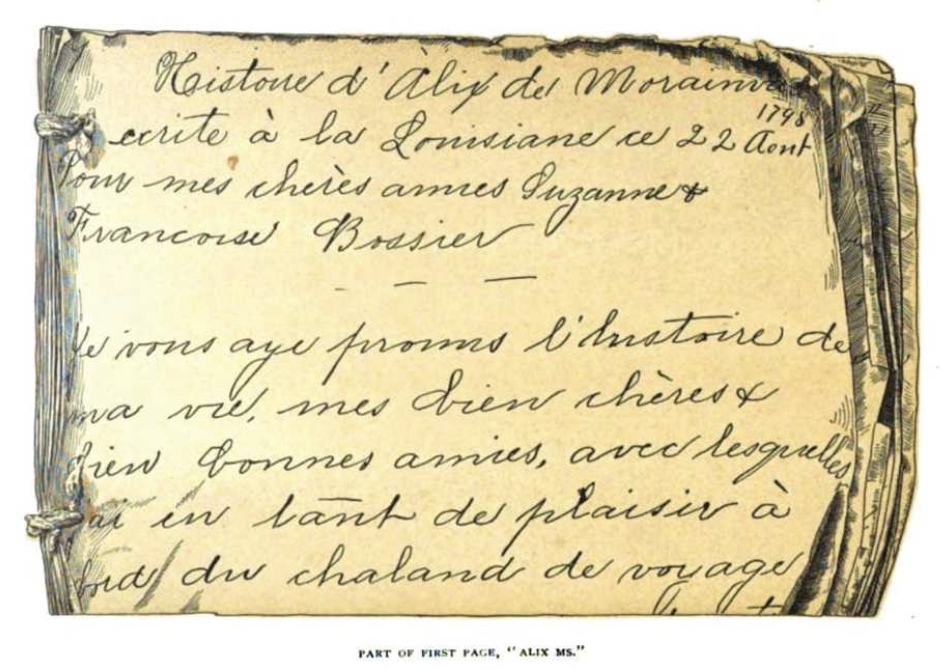 Histoire d'Àlix de Morainvi
1798
ecrite à la Louisiane ce 22 Aout
Pour mes chères amies Suzanne &
Francoise Bossier
Je vous aye promis l'histoire de
ma vie, mes bien chères &
bien bonnes amies, avec lesquelles
ai eu tant de plaisir à
bord du chaland de voyage
PART OF FIRST PAGE, "ALIX MS."